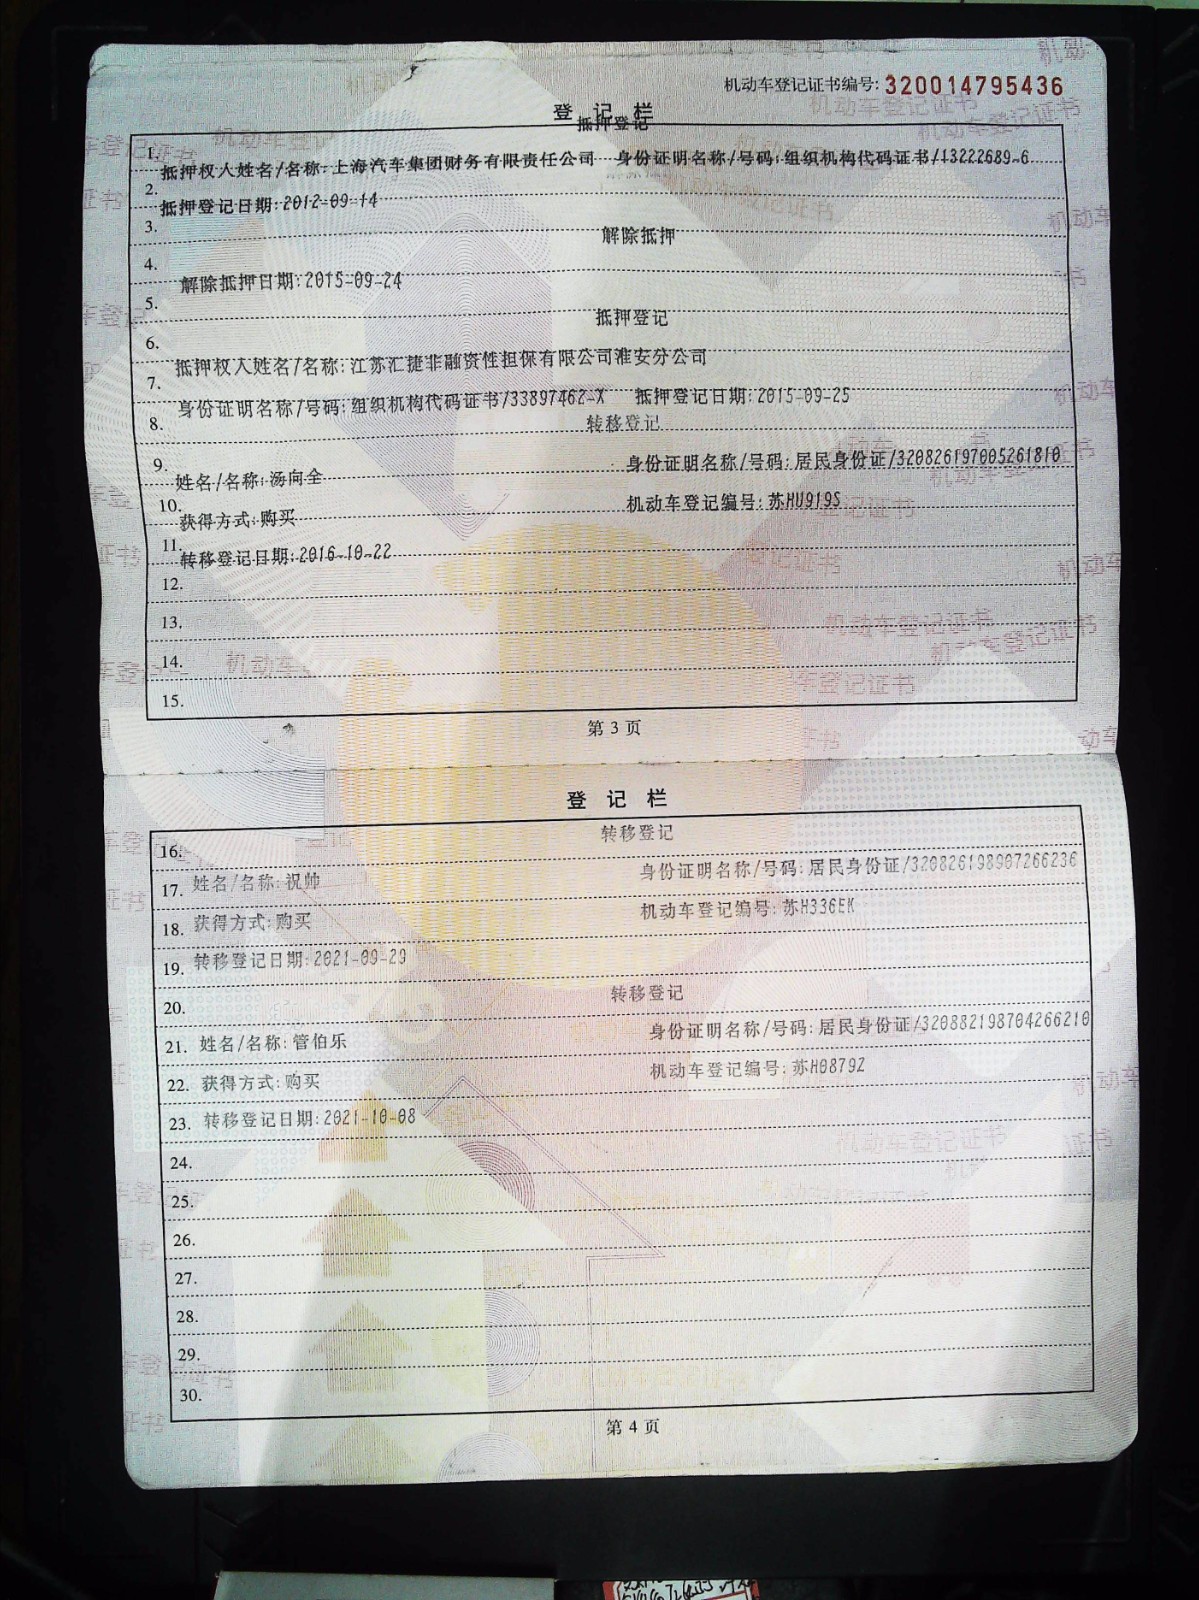 机动车登记证书编号:320014795436
登 记 栏
抵押登记
1.
抵押权人姓名/名称:上海汽车集团财务有限责任公司 身份证明名称/号码:组织机构代码证书/13222689-6
2.
抵押登记日期:2012-09-14
3.
解除抵押
4.
解除抵押日期:2015-09-24
5.
抵押登记
6.
抵押权人姓名/名称:江苏汇捷非融资性担保有限公司淮安分公司
7.
身份证明名称/号码:组织机构代码证书/33897462-X 抵押登记日期:2015-09-25
8.
转移登记
9.
姓名/名称:汤向全 身份证明名称/号码:居民身份证/320826197005261810
10.
获得方式:购买 机动车登记编号:苏HU919S
11.
转移登记日期:2016-10-22
12.
13.
14.
15.
第 3 页
登 记 栏
16. 转移登记
17. 姓名/名称:祝帅 身份证明名称/号码:居民身份证/320826198907266236
18. 获得方式:购买 机动车登记编号:苏H336EK
19. 转移登记日期:2021-09-29
20. 转移登记
21. 姓名/名称:管伯乐 身份证明名称/号码:居民身份证/320882198704266210
22. 获得方式:购买 机动车登记编号:苏H0879Z
23. 转移登记日期:2021-10-08
24.
25.
26.
27.
28.
29.
30.
第 4 页